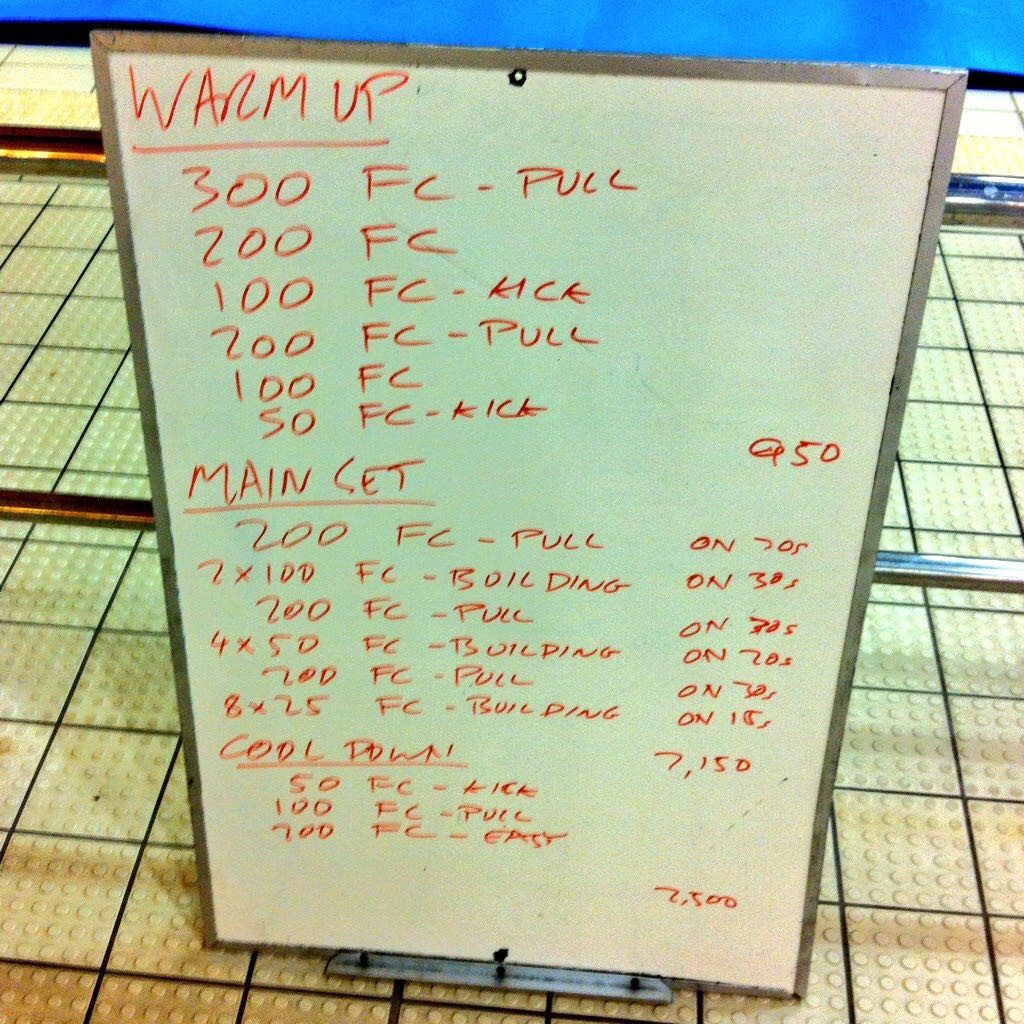 WARM UP
300 FC - PULL
200 FC
100 FC - KICK
200 FC - PULL
100 FC
50 FC - KICK
950
MAIN SET
200 FC - PULL ON 20s
2 x 100 FC - BUILDING ON 30s
200 FC - PULL ON 30s
4 x 50 FC - BUILDING ON 20s
200 FC - PULL ON 30s
8 x 25 FC - BUILDING ON 15s
2,150
COOL DOWN
50 FC - KICK
100 FC - PULL
200 FC - EASY
2,500